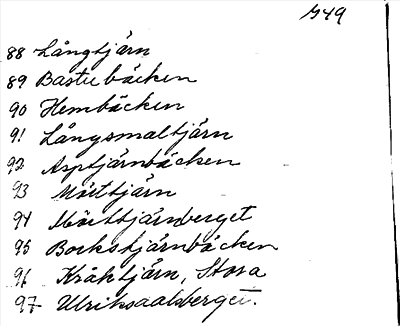 1949
88 Långtjärn
89 Bastubäcken
90 Hembäcken
91 Långsmaltjärn
92 Asptjärnbäcken
93 Mörttjärn
94 Mörttjärnberget
95 Bockstjärnbäcken
96 Kråktjärn, Stora
97 Ulriksaalsberget.